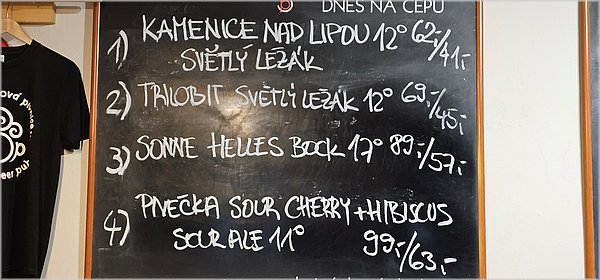 DNES NA ČEPU
1) KAMENICE NAD LIPOU 12° 62,-/41,-
SVĚTLÝ LEŽÁK
2) TRILOBIT SVĚTLÝ LEŽÁK 12° 69,-/45,-
3) SONNE HELLES BOCK 17° 89,-/57,-
4) PIVEČKA SOUR CHERRY + HIBISCUS
SOUR ALE 11° 99,-/63,-